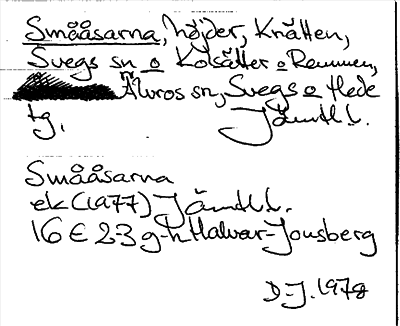 Smååsarna, höjder, Knätten,
Svegs sn o Kolsätter o Remmen,
Älvros sn, Svegs o Hede
tg, Jämtl.l.
Smååsarna
ek (1977) Jämtl.l.
16 E 2-3 g-h Halvar-Jonsberg
D-J. 1978